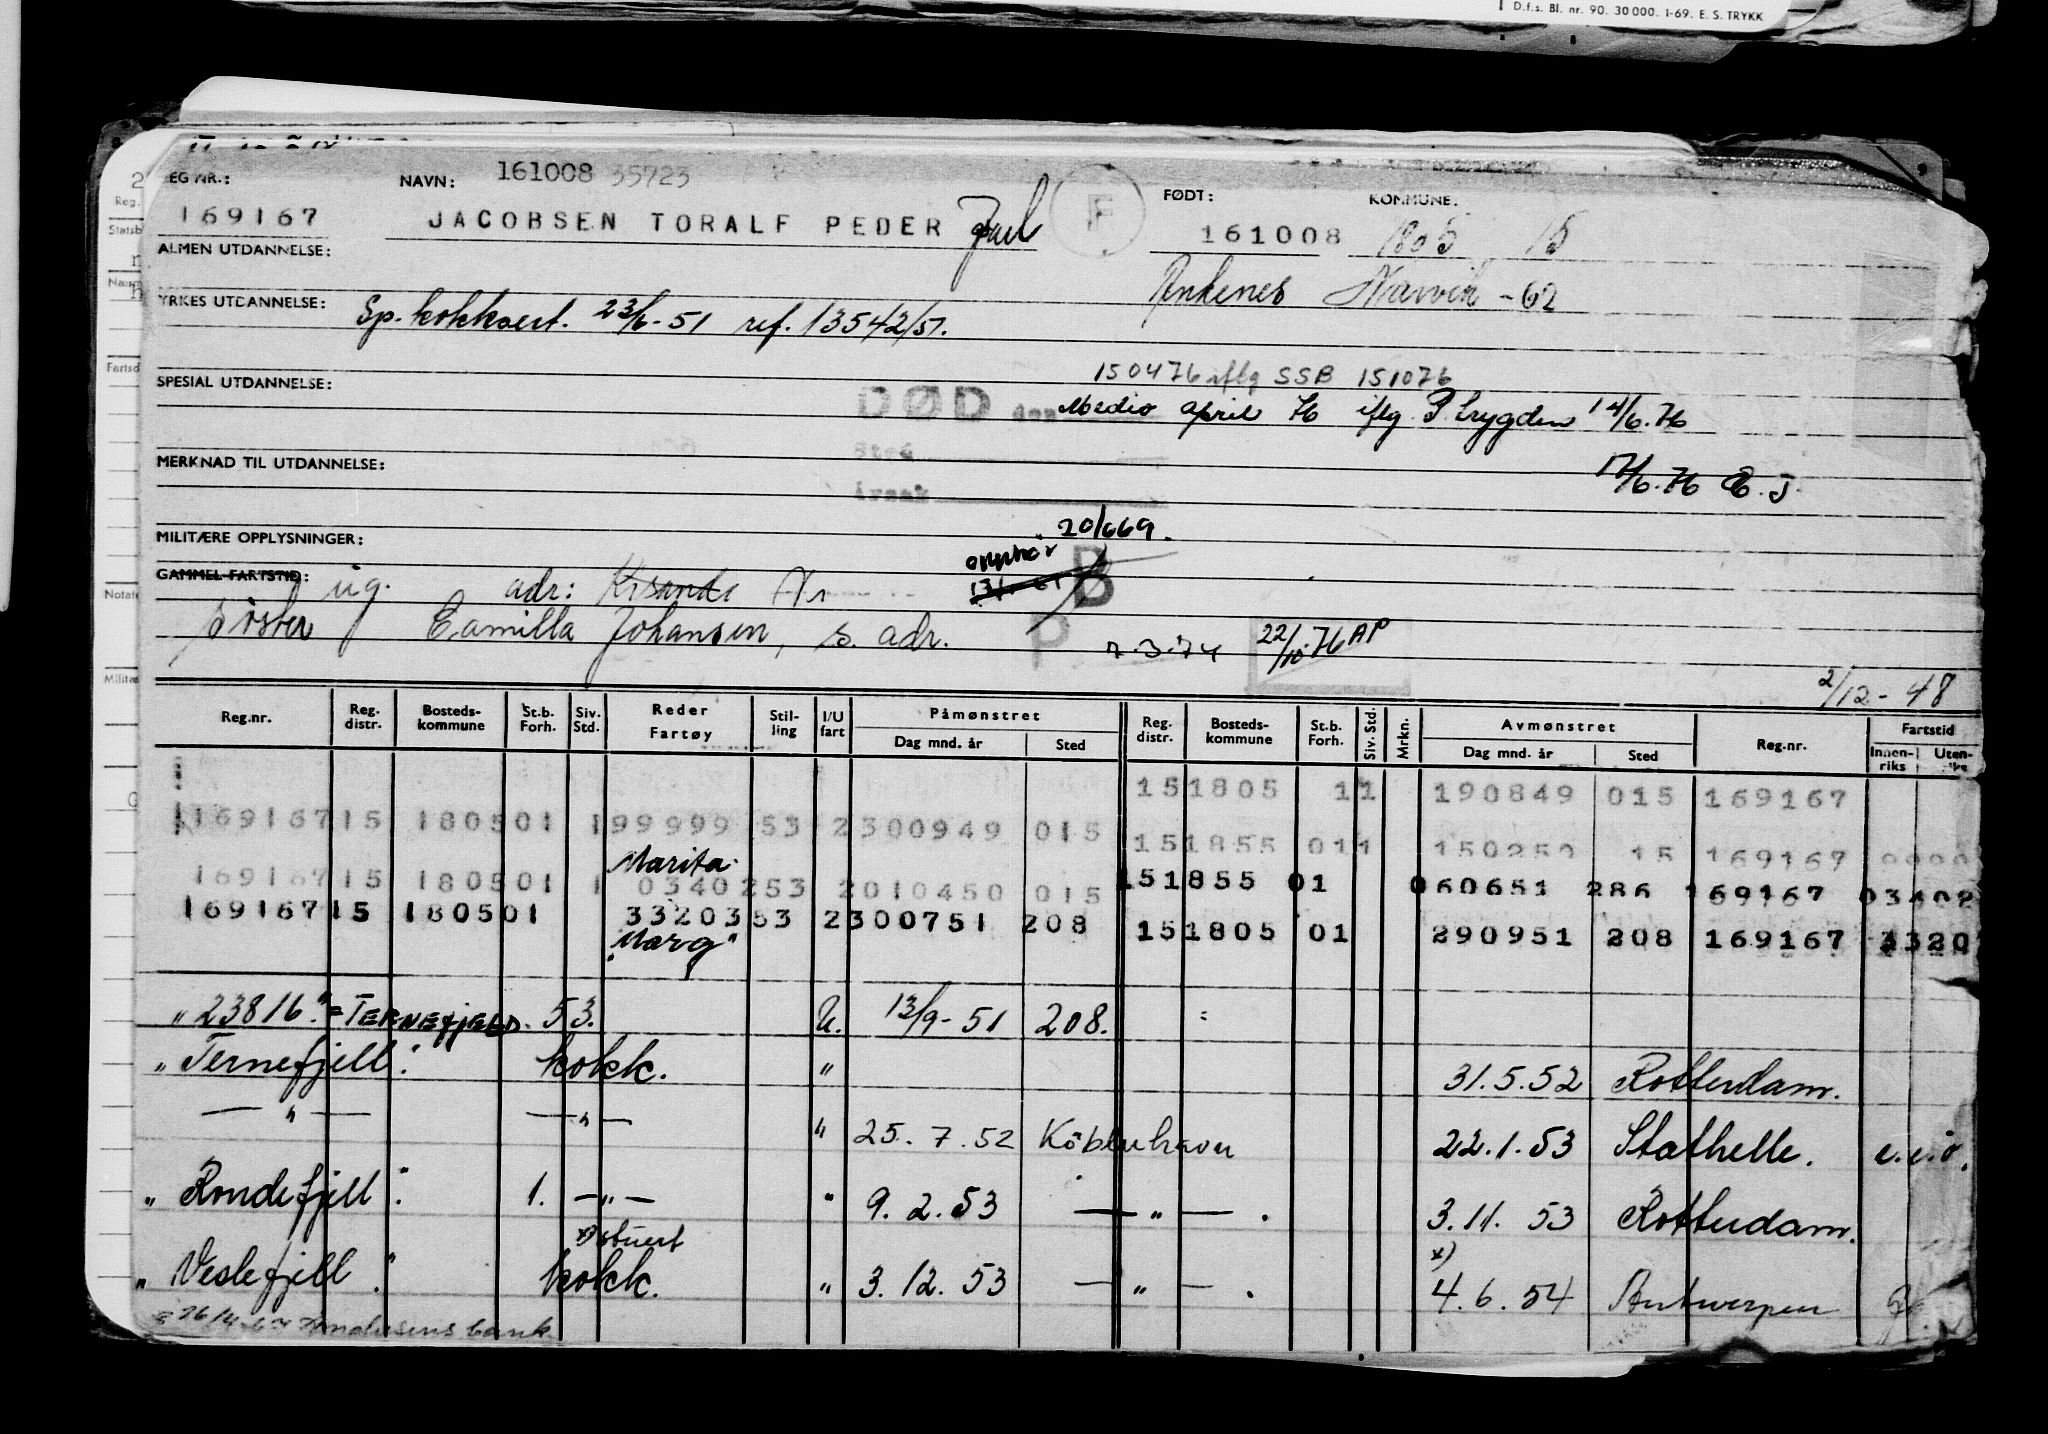 D.f.s. Bl. nr. 90. 30 000. 1-69. E. S. TRYKK
REG NR.: NAVN: 161008 35723 F FØDT: KOMMUNE.
169167 JACOBSEN TORALF PEDER 161008 1805 15
ALMEN UTDANNELSE: Ankenes Narvik -62
YRKES UTDANNELSE: Sp. kokksert. 23/6-51 ref. 13542/51.
150476 iflg SSB 151076
SPESIAL UTDANNELSE: DØD den Medio april 76 iflg P.trygden 14/6.76
Sted
MERKNAD TIL UTDANNELSE: 17/6.76 E.J.
Årsak
20/669.
MILITÆRE OPPLYSNINGER: opphør B
GAMMEL FARTSTID: ug. adr: Krsands
søster Camilla Johansen, s. adr. P 7.3.74 22/10.76 AP
2/12-48
Reg.nr. Reg. distr. Bosteds-kommune St.b. Forh. Siv. Std. Reder Fartøy Stil-ling I/U fart Påmønstret Dag mnd. år Sted Reg. distr. Bosteds-kommune St.b. Forh. Siv. Std. Mrkn. Avmønstret Dag mnd. år Sted Reg.nr. Fartstid Innen-riks Uten-riks
151805 11 190849 015 169167
169167 15 1805 01 1 99999 53 2 300949 015
151855 011 150250 15 169167
Marita
169167 15 1805 01 1 0340253 2 010450 015
151855 01 060651 286 169167 03402
169167 15 1805 01 3320353 2 300751 208
151805 01 290951 208 169167 3320
"Marg"
"23816" = TERNEFJELD. 53. U. 13/9-51 208.
"Ternefjell". kokk. " 31.5.52 Rotterdam.
— " — — " — " 25.7.52 Köbenhavn 22.1.53 Stathelle. e.e.o.
"Rondefjell". 1. — " — " 9.2.53 — " — . 3.11.53 Rotterdam.
x) stuert x)
"Veslefjell". kokk. " 3.12.53 — " — . 4.6.54 Antwerpen
bank